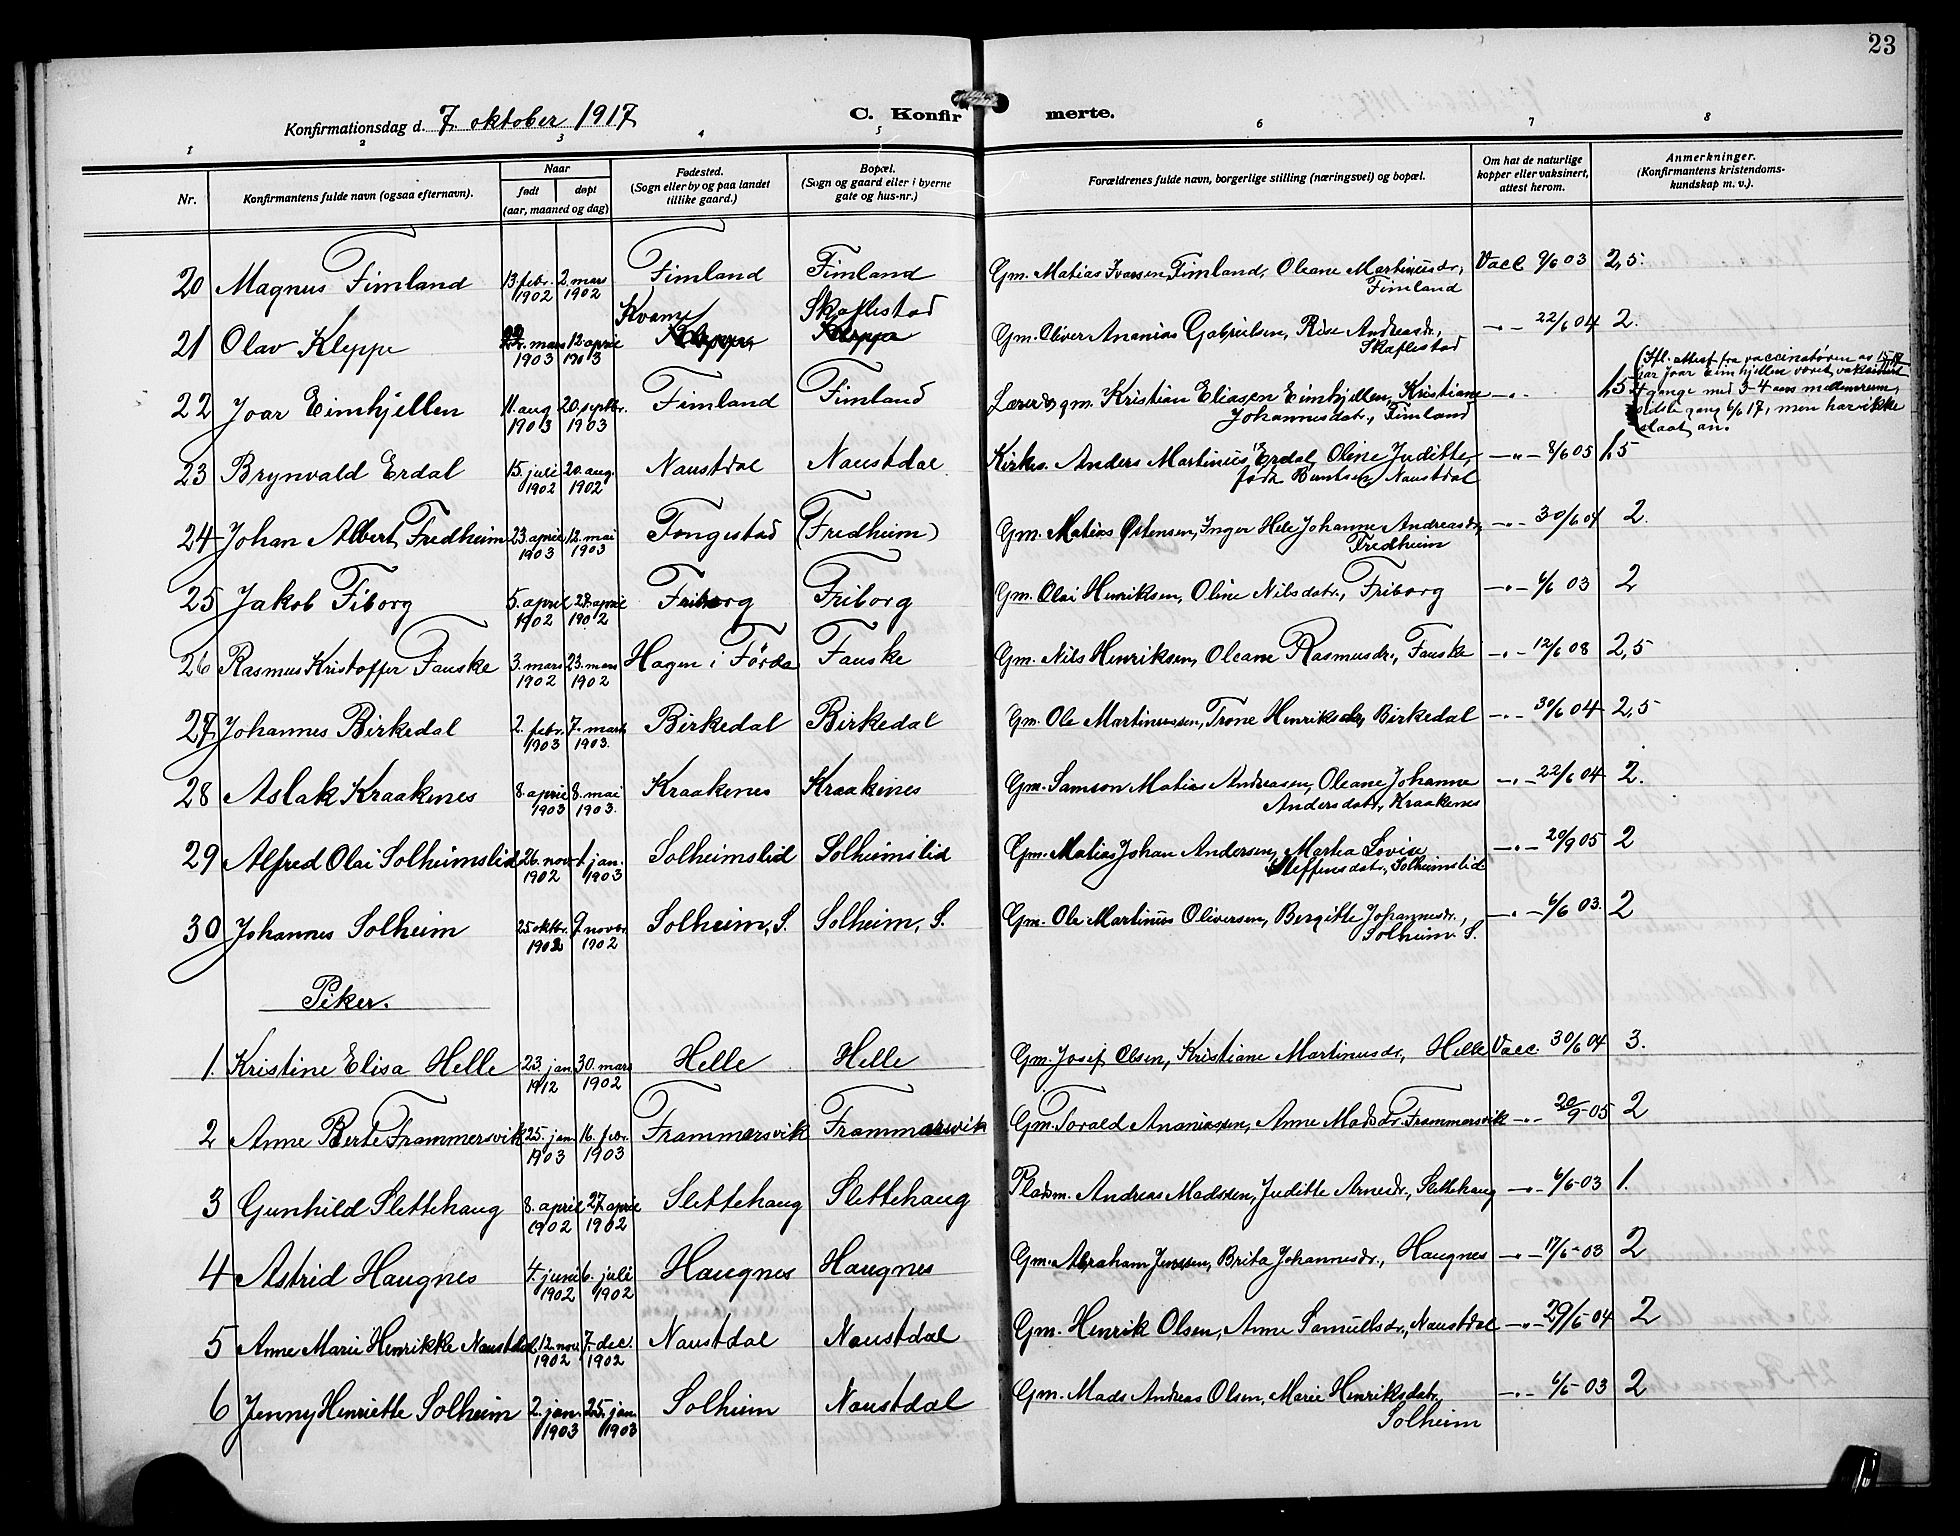 23
Konfirmationsdag d. 7. oktober 1917
C. Konfirmerte.
1 2 3 4 5 6 7 8
Nr. | Konfirmantens fulde navn (ogsaa efternavn). | Naar født døpt (aar, maaned og dag) | Fødested. (Sogn eller by og paa landet tillike gaard.) | Bopæl. (Sogn og gaard eller i byerne gate og hus-nr.) | Forældrenes fulde navn, borgerlige stilling (næringsvei) og bopæl. | Om hat de naturlige kopper eller vaksinert, attest herom. | Anmerkninger. (Konfirmantens kristendoms-kundskap m. v.).
20 Magnus Fimland 13. febr. 1902 2. mars 1902 Fimland Fimland Gm. Matias Ivarsen Fimland, Oleane Martinusdr., Fimland Vacc 9/6 03 2,5
21 Olav Kleppe mars 1903 12. april 1903 Kvame Skaflestad Gm. Oliver Ananias Gabrielsen, Andreasdr., Skaflestad —„— 22/6 04 2.
22 Joar Eimhjellen 11. aug 1903 20. septbr. 1903 Fimland Fimland Lærer og gm. Kristian Eliasen Eimhjellen, Kristiane Johannesdatr., Fimland —„— 1,5 (Ifl. attest fra vaccinatøren av har Joar Eimhjellen været vaksinert 4 gange med 3-4 aars mellemrum, sidste gang 6/6 17, men har ikke slaat an.
23 Brynvald Erdal 15. juli 1902 20. aug. 1902 Naustdal Naustdal Kirkes. Anders Martinus Erdal, Oline Juditte, født Berntsen, Naustdal —„— 8/6 05 1,5
24 Johan Albert Fredheim 23. april 1903 12. mai 1903 Tongestad (Fredheim) Gm. Matias Østensen, Inger Johanne Andreasdr., Fredheim —„— 30/6 04 2.
25 Jakob Fiborg 5. april 1902 27. april 1902 Friborg Friborg Gm. Olai Henriksen, Oline Nilsdatr., Friborg —„— 6/6 03 2
26 Rasmus Kristoffer Fauske 3. mars 1902 23. mars 1902 Hagen i Førde Fauske Gm. Nils Henriksen, Oleane Rasmusdr., Fauske —„— 12/6 08 2,5
27 Johannes Birkedal 2. febr. 1903 7. mars 1903. Birkedal Birkedal Gm. Ole Martinussen, Trone Henriksdr, Birkedal —„— 30/6 04 2,5
28 Aslak Kraakenes 8. april 1903 8. mai 1903. Kraakenes Kraakenes Gm. Samson Matias Andreasen, Oleane Johanne Andersdatr, Kraakenes —„— 22/6 04 2.
29 Alfred Olai Solheimslid 26. nov 1902 1. jan. 1903 Solheimslid Solheimslid Gm. Matias Johan Andersen, Marta Lovise Steffensdatr, Solheimslid —„— 20/9 05 2
30 Johannes Solheim 25 oktbr. 1902 9. novbr. 1902 Solheim, S. Solheim, S. Gm. Ole Martinus Oliversen, Bergitte Johannesdr., Solheim. S. —„— 6/6 03. 2
Piker.
1. Kristine Elisa Helle 23. jan 1912 30. mars 1902 Helle Helle Gm. Josef Olsen, Kristiane Martinusdr., Helle Vacc. 30/6 04 3.
2 Anne Berte Frammersvik 25. jan 1903 16. febr. 1903 Frammersvik Frammersvik Gm. Torald Ananiassen, Anne Madsdr. Frammersvik —„— 20/9-05 2
3 Gunhild Slettehaug 8. april 1902 27. april 1902 Slettehaug Slettehaug Pladsm. Andreas Madssen, Juditte Arnesdr., Slettehaug —„— 6/6-03 1.
4 Astrid Haugnes 4. juni 1902 6. juli 1902 Haugnes Haugnes Gm. Abraham Jenssen, Brita Johannesdr., Haugnes —„— 17/6-03 2
5 Anne Marie Henrikke Naustdal 12. nov. 1902 7. dec. 1902 Naustdal Naustdal Gm. Henrik Olsen, Anne Samuelsdr., Naustdal —„— 29/6-04 2
6 Jenny Henriette Solheim 2. jan. 1903 25. jan. 1903 Solheim Naustdal Gm. Mads Andreas Olsen, Marie Henriksdatr, Solheim —„— 6/6-03 2